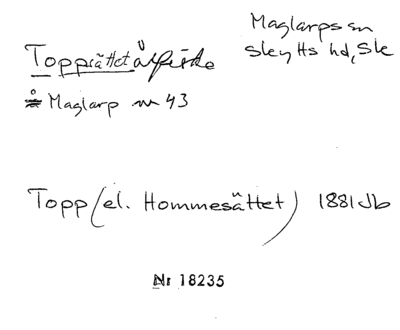 Maglarps sn
Skytts hd, Sk
Toppsättet ålfiske
å Maglarp nr 43
Topp (el. Hommesättet) 1881 Jb
Nr 18235